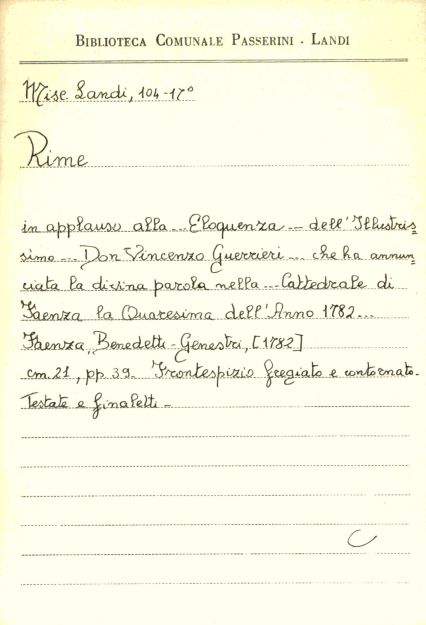 BIBLIOTECA COMUNALE PASSERINI - LANDI
Misc. Landi, 104-17°
Rime
in applauso alla ... Eloquenza ... dell'Illustris=
simo ... Don Vincenzo Guerrieri ... che ha annun=
ciata la divina parola nella ... Cattedrale di
Faenza la Quaresima dell'Anno 1782...
Faenza, Benedetti-Genestri, [1782]
cm. 21, pp. 39. Frontespizio fregiato e contornato.
Testate e finaletti -
C